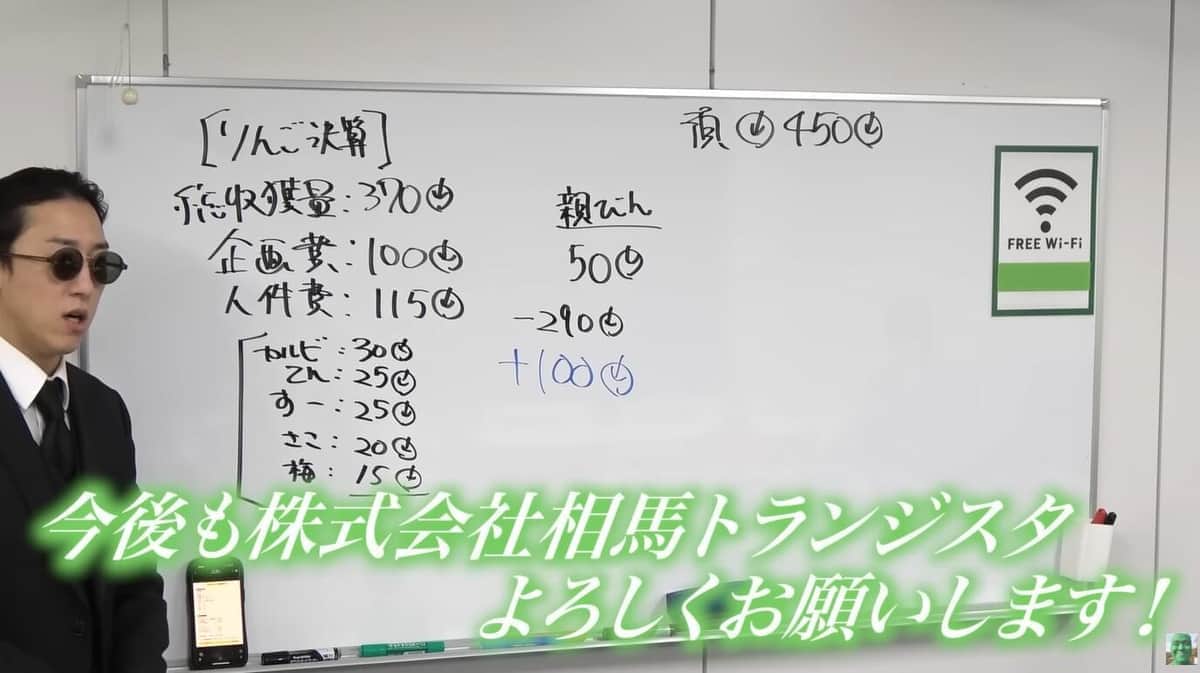 [りんご決算]
総収獲量:370
企画費:100
人件費:115
カルビ:30
てん:25
すー:25
さこ:20
梅:15
親びん
50
-290
+100
頂 450
FREE Wi-Fi
今後も株式会社相馬トランジスタ
よろしくお願いします!